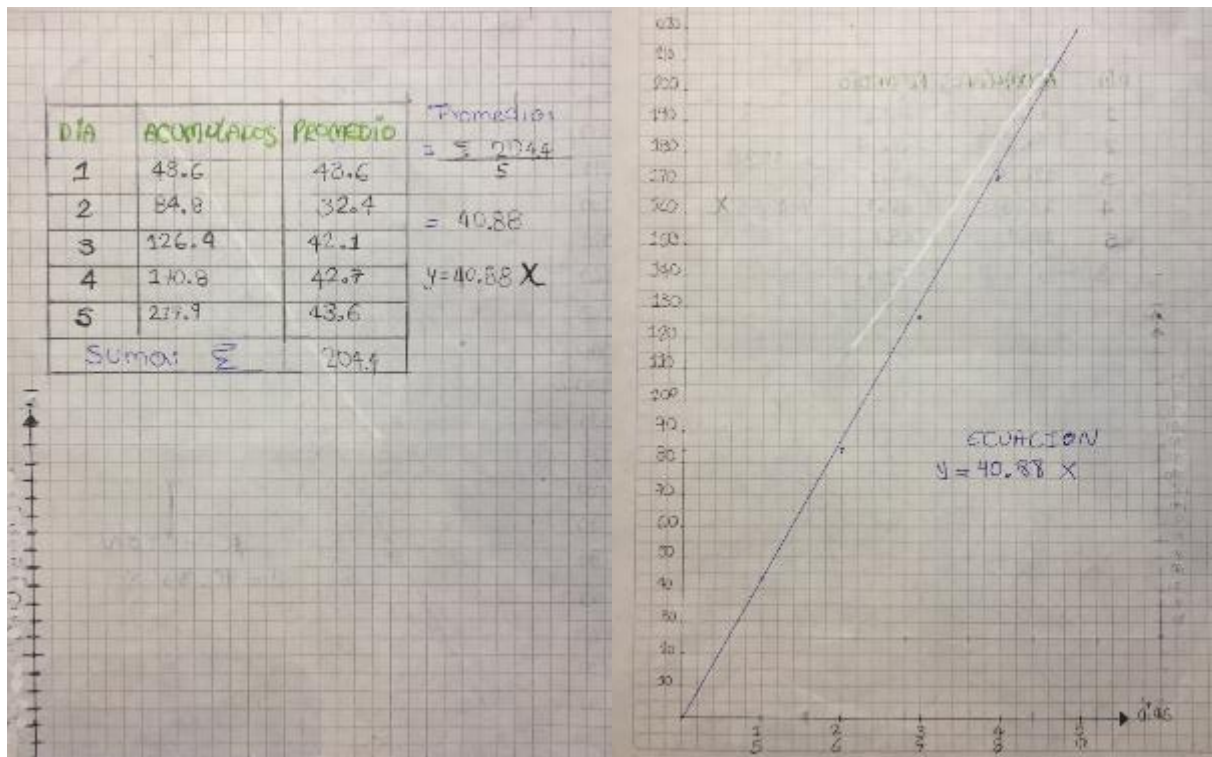 DÍA ACUMULADOS PROMEDIO
1 43.6 43.6
2 84.8 32.4
3 126.4 42.1
4 170.8 42.7
5 217.9 43.6
Suma: Σ 204.4
Promedio:
= Σ 204.4
5
= 40.88
y=40.88 X
210
200
190
180
170
160
150
140
130
120
110
100
90
80
70
60
50
40
30
20
10
ECUACION
y = 40.88 X
días